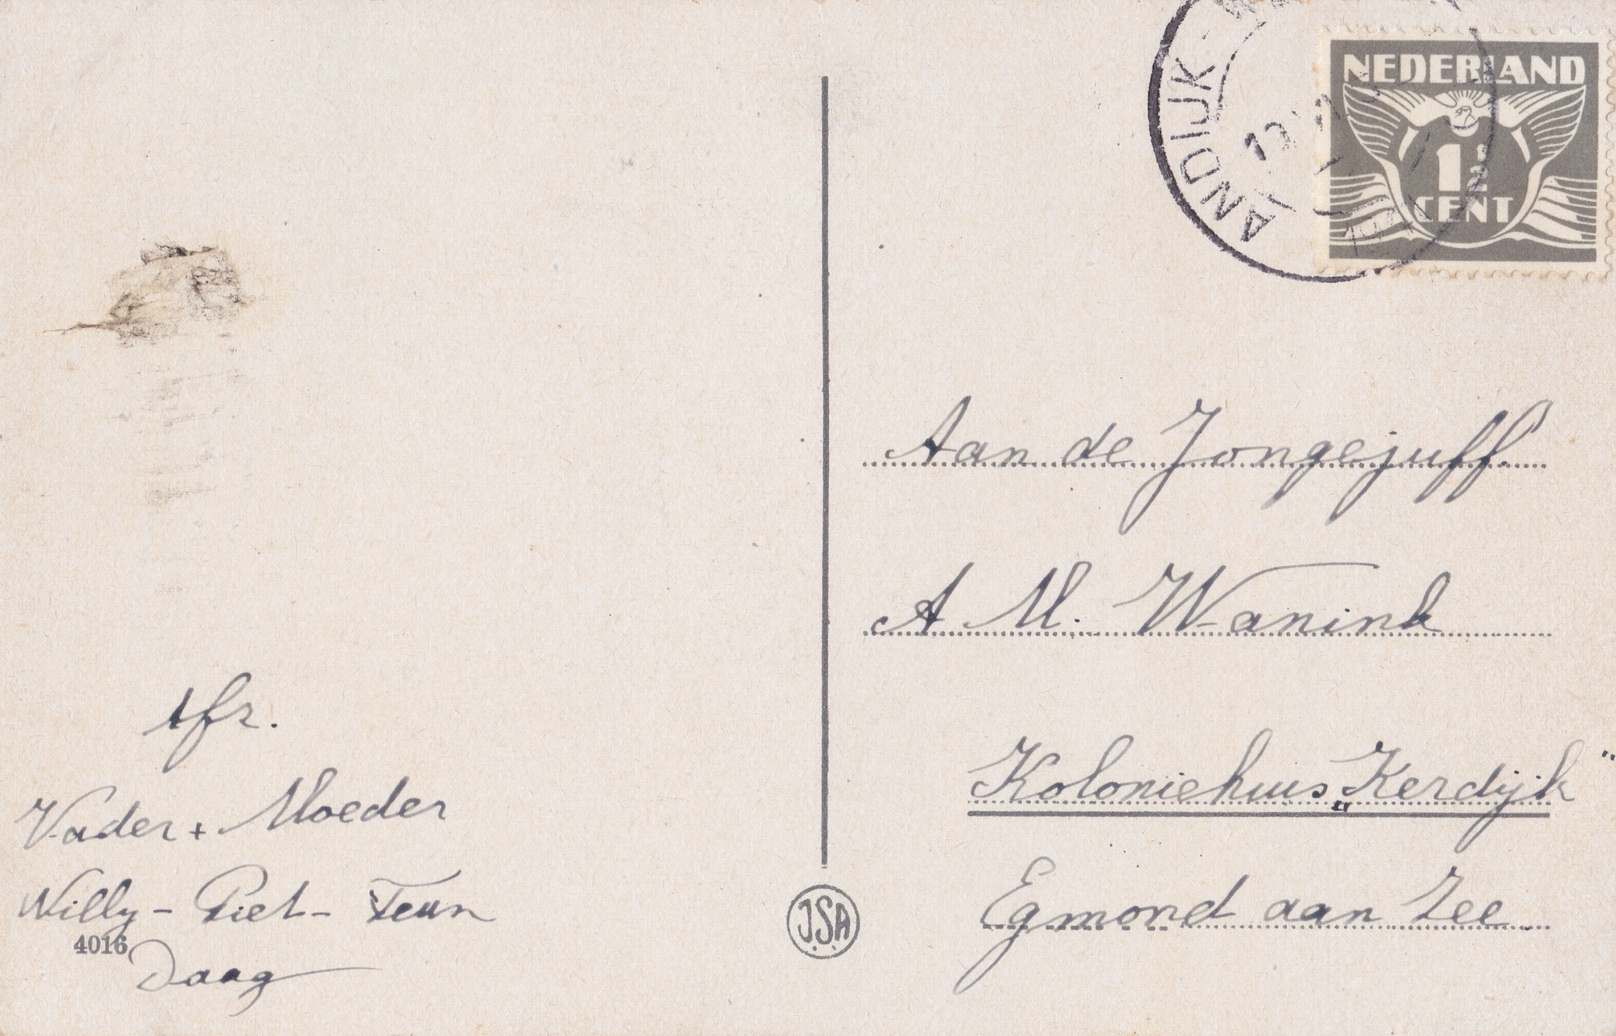 ANDIJK
NEDERLAND
1½
CENT
Aan de Jongejuff.
A M. Wanink
Koloniehuis „Kerdijk"
Egmond aan Zee
Afz.
Vader + Moeder
Willy - Piet - Teun
4016
Daag
J.S.A.